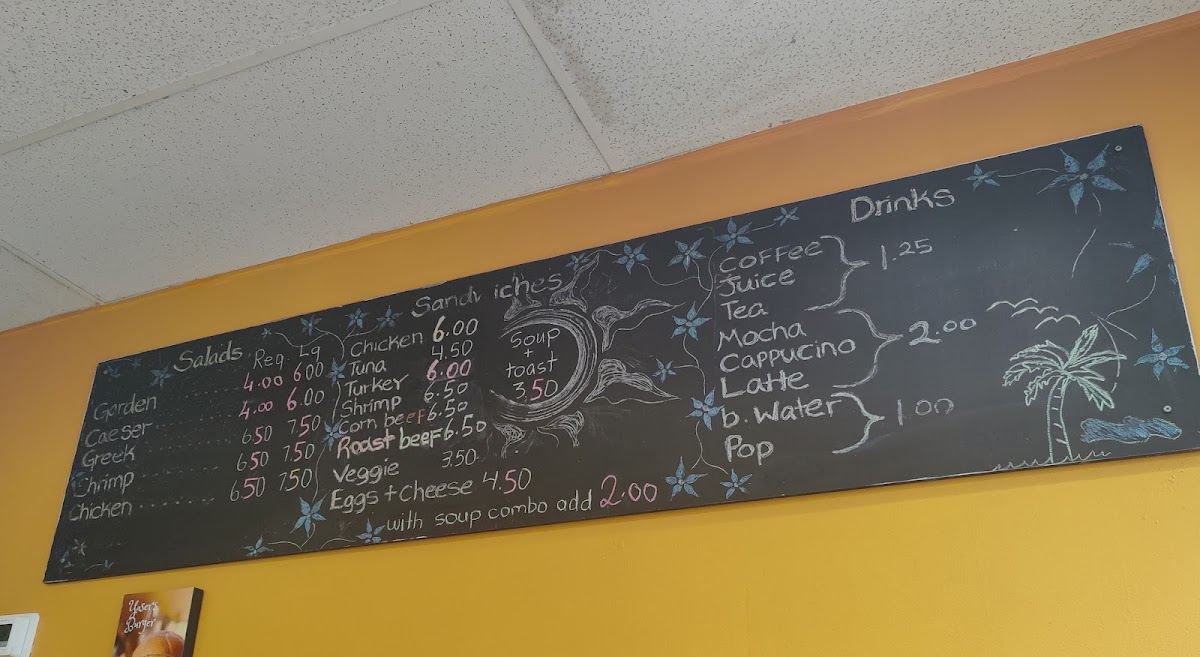 Salads Reg. Lg
Garden 4.00 6.00
Caeser 4.00 6.00
Greek 6.50 7.50
Shrimp 6.50 7.50
Chicken 6.50 7.50
Sandwiches
Chicken 6.00
Tuna 4.50
Turkey 6.00
Shrimp 6.50
Corn beef 6.50
Roast beef 6.50
Veggie 3.50
Eggs + Cheese 4.50
with soup combo add 2.00
Soup
+
toast
3.50
Drinks
Coffee
Juice
Tea
1.25
Mocha
Cappucino
Latte
2.00
b. Water
Pop
1.00
Yaser's
Burger